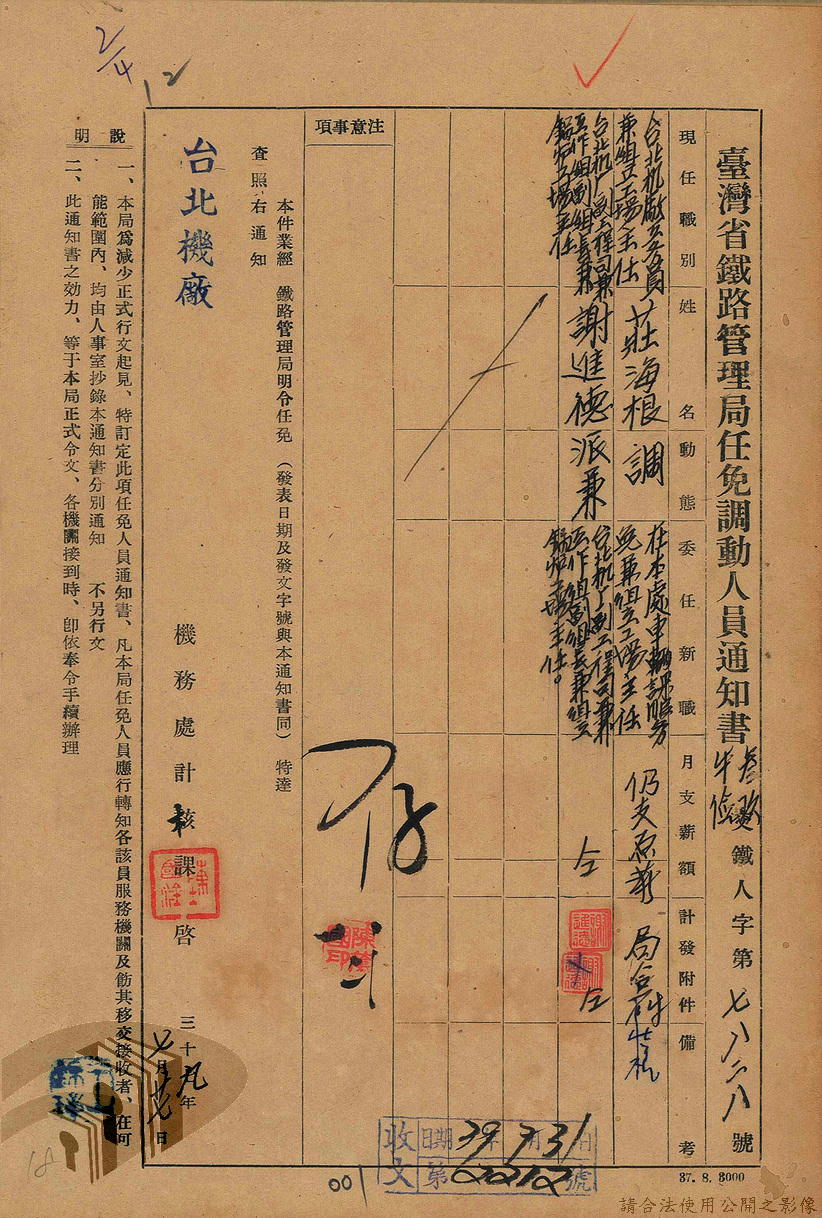 臺灣省鐵路管理局任免調動人員通知書
鐵人字第七八二八號
現任職別
姓名
動態
委任新職
月支薪額
計發附件
備考
台北机廠委員
兼組立工場主任
莊海根
調
在本處車輛課服務
免兼組立工場主任
仍支原薪
台北机厂副工程司兼
工作組副組長兼
鍋炉工場主任
謝進德
派兼
台北机厂副工程司兼
工作組副組長兼組立
鍋炉工場主任。
仝
仝
注意事項
存
本件業經 鐵路管理局明令任免 (發表日期及發文字號與本通知書同) 特達
查照
右通知
台北機廠
機務處計核課啓
三十九年七月廿七日
說明
一、本局爲減少正式行文起見、特訂定此項任免人員通知書、凡本局任免人員應行轉知各該員服務機關及飭其移交接收者、在可
能範圍內、均由人事室抄錄本通知書分別通知 不另行文
二、此通知書之効力、等于本局正式令文、各機關接到時、卽依奉令手續辦理
收文
日期 39年7月31日
第02212號
001
37. 8. 3000
2/4
12
18
請合法使用公開之影像